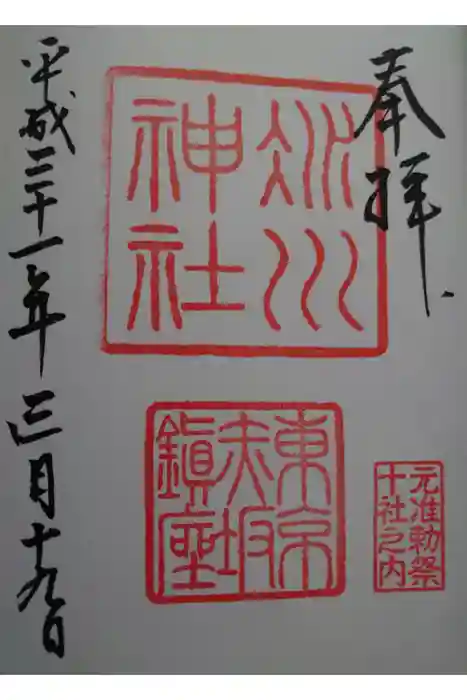 奉拝
氷川
神社
東京
赤坂
鎮座
元准勅祭
十社之内
平成二十一年三月十九日